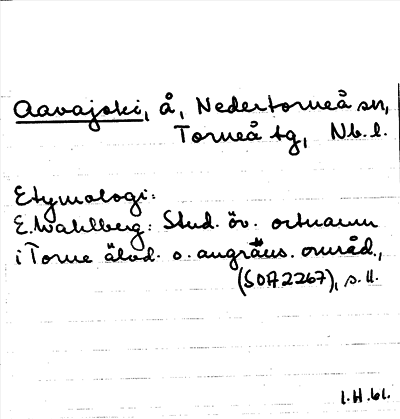 Aavajoki, å, Nedertorneå sn,
Torneå tg, Nb.l.
Etymologi:
E.Wahlberg: Stud. öv. ortnamn
i Torne älvd. o. angräns. områd.,
(SOA 2267), s. 11.
1.H.61.